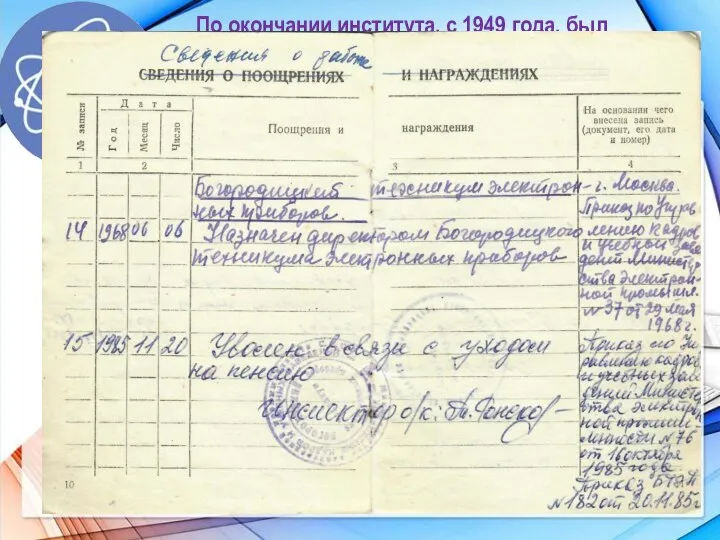 По окончании института, с 1949 года, был
Сведения о работе
СВЕДЕНИЯ О ПООЩРЕНИЯХ И НАГРАЖДЕНИЯХ
№ записи
Дата
Год
Месяц
Число
Поощрения и награждения
На основании чего
внесена запись
(документ, его дата
и номер)
1 2 3 4
Богородицкий техникум электрон-
ных приборов.
г. Москва.
14 1968 06 06 Назначен директором Богородицкого
техникума электронных приборов
Приказ по Управ
лению кадров
и учебных заве
дений Министер
ства электрон-
ной промышл.
№ 37 от 29 мая
1968 г.
15 1985 11 20 Уволен в связи с уходом
на пенсию
инспектор о/к:
Приказ по Уп
равлению кадров
и учебных заве
дений Министе
рства электрон
ной промыш-
ленности № 76
от 16 октября
1985 года
Приказ БТЭП
№ 182 от 20.11.85г
10